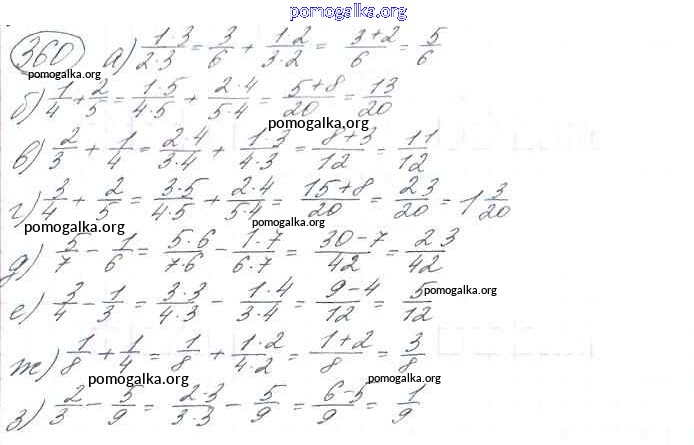 pomogalka.org
360 а) 1·3/2·3 = 3/6 + 1·2/3·2 = 3+2/6 = 5/6
pomogalka.org pomogalka.org
б) 1/4 + 2/5 = 1·5/4·5 + 2·4/5·4 = 5+8/20 = 13/20
pomogalka.org
в) 2/3 + 1/4 = 2·4/3·4 + 1·3/4·3 = 8+3/12 = 11/12
г) 3/4 + 2/5 = 3·5/4·5 + 2·4/5·4 = 15+8/20 = 23/20 = 1 3/20
pomogalka.org pomogalka.org
д) 5/7 - 1/6 = 5·6/7·6 - 1·7/6·7 = 30-7/42 = 23/42
е) 3/4 - 1/3 = 3·3/4·3 - 1·4/3·4 = 9-4/12 = 5/12
pomogalka.org
ж) 1/8 + 1/4 = 1/8 + 1·2/4·2 = 1+2/8 = 3/8
pomogalka.org pomogalka.org
з) 2/3 - 5/9 = 2·3/3·3 - 5/9 = 6-5/9 = 1/9